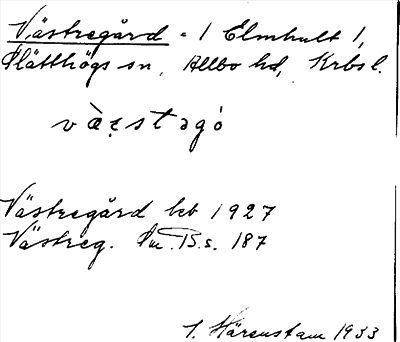 Västregård - 1 Elmhult 1,
Slätthögs sn, Allbo hd, Krbs l.
væ̀stəgó
Västregård lcb 1927
Västreg. In. B. s. 187
I. Härenstam 1933